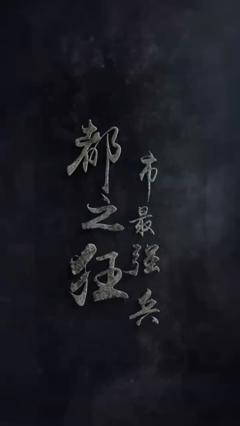 都市之最强狂兵